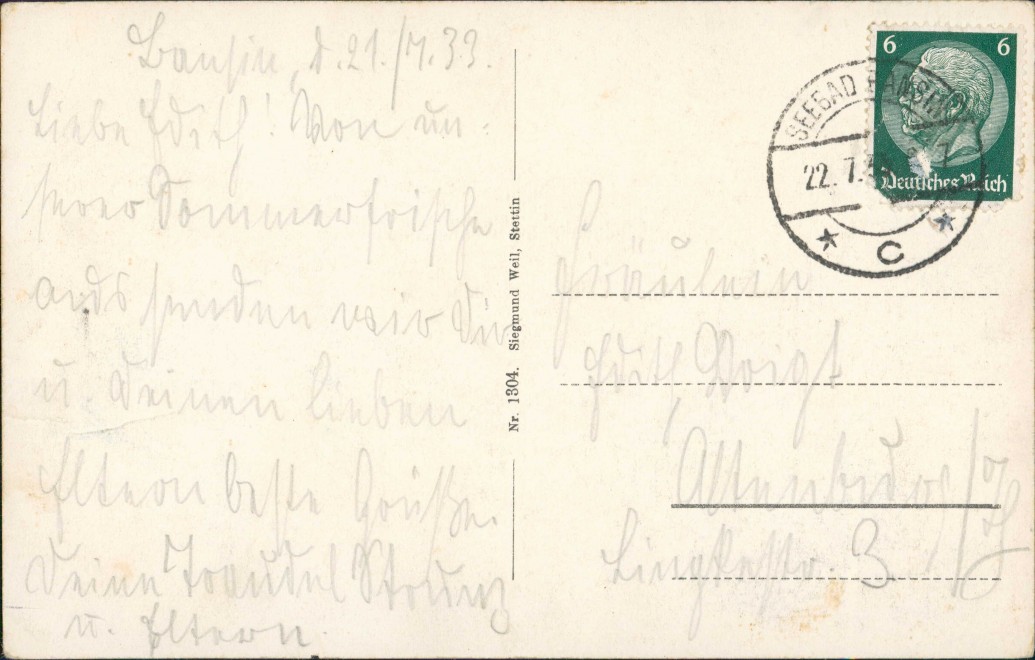 Bansin, d. 21./7.33.
Liebe Edith! Von un-
serer Sommerfrische
aus senden wir Dir
u. Deinen lieben
Eltern beste Grüße.
Deine Traudel Strunz
u. Eltern.
Nr. 1304. Siegmund Weil, Stettin
6 6
Deutsches Reich
SEEBAD BANSIN
22.7.33
* C *
Fräulein
Edith Voigt
Altenburg /Th
Lingkestr. 3